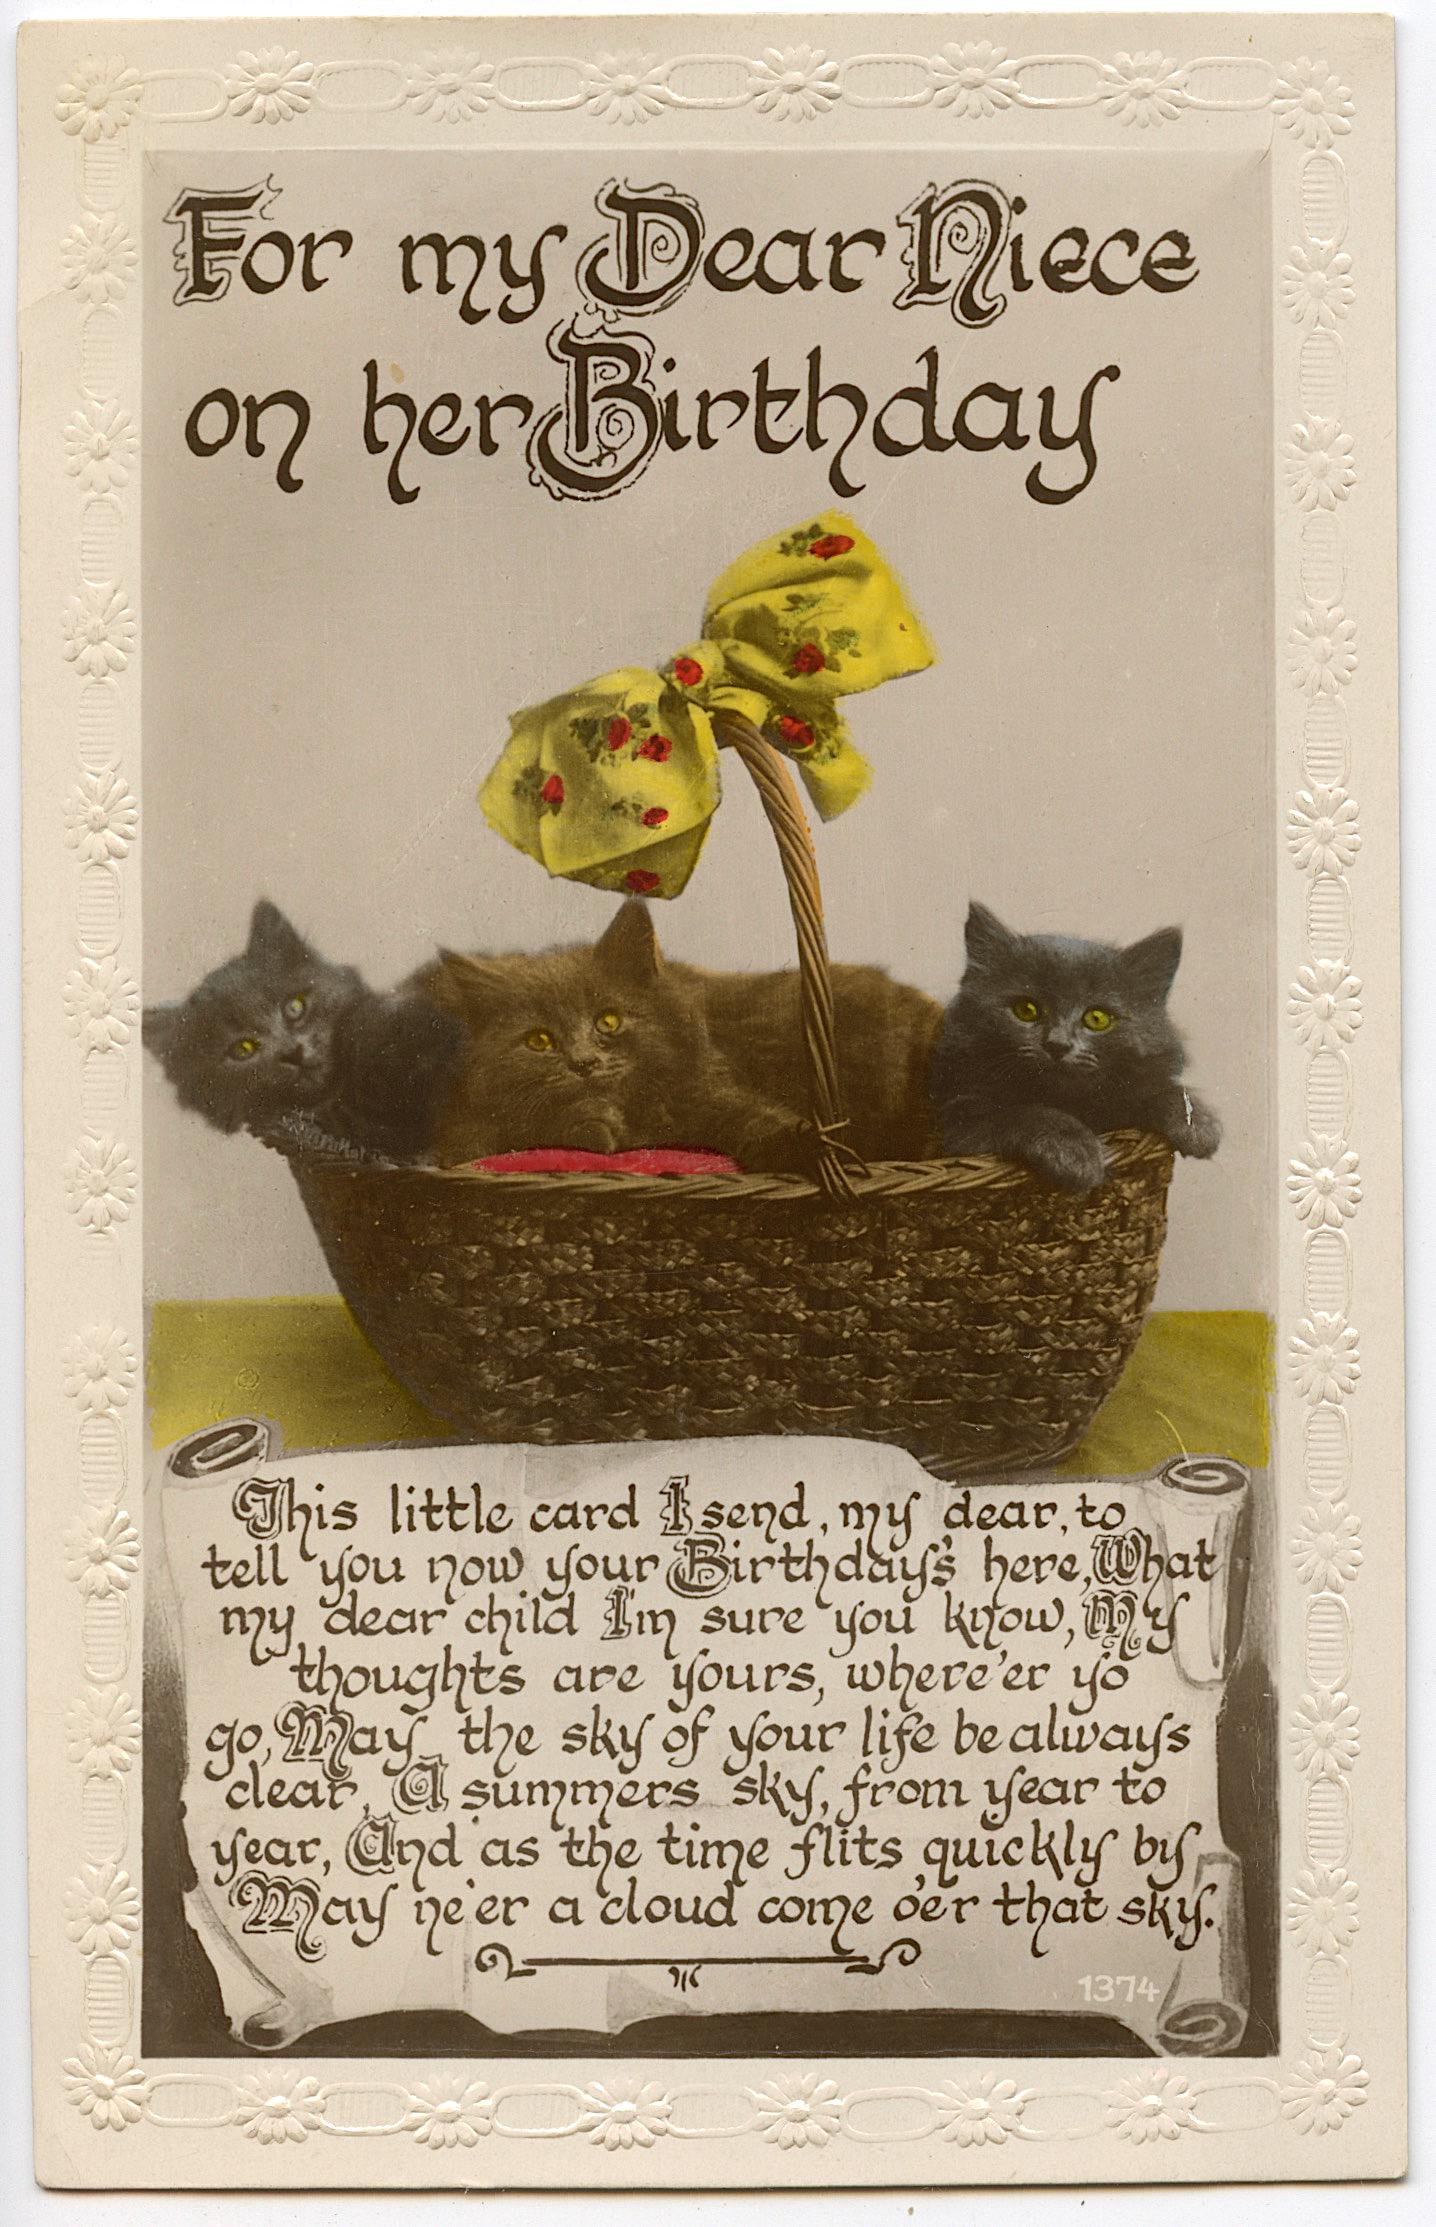 For my Dear Niece
on her Birthday
This little card I send, my dear, to
tell you now your Birthday's here, What
my dear child I'm sure you know, My
thoughts are yours, where'er yo
go, May the sky of your life be always
clear, A summers sky, from year to
year, And as the time flits quickly by
May ne'er a cloud come o'er that sky.
1374